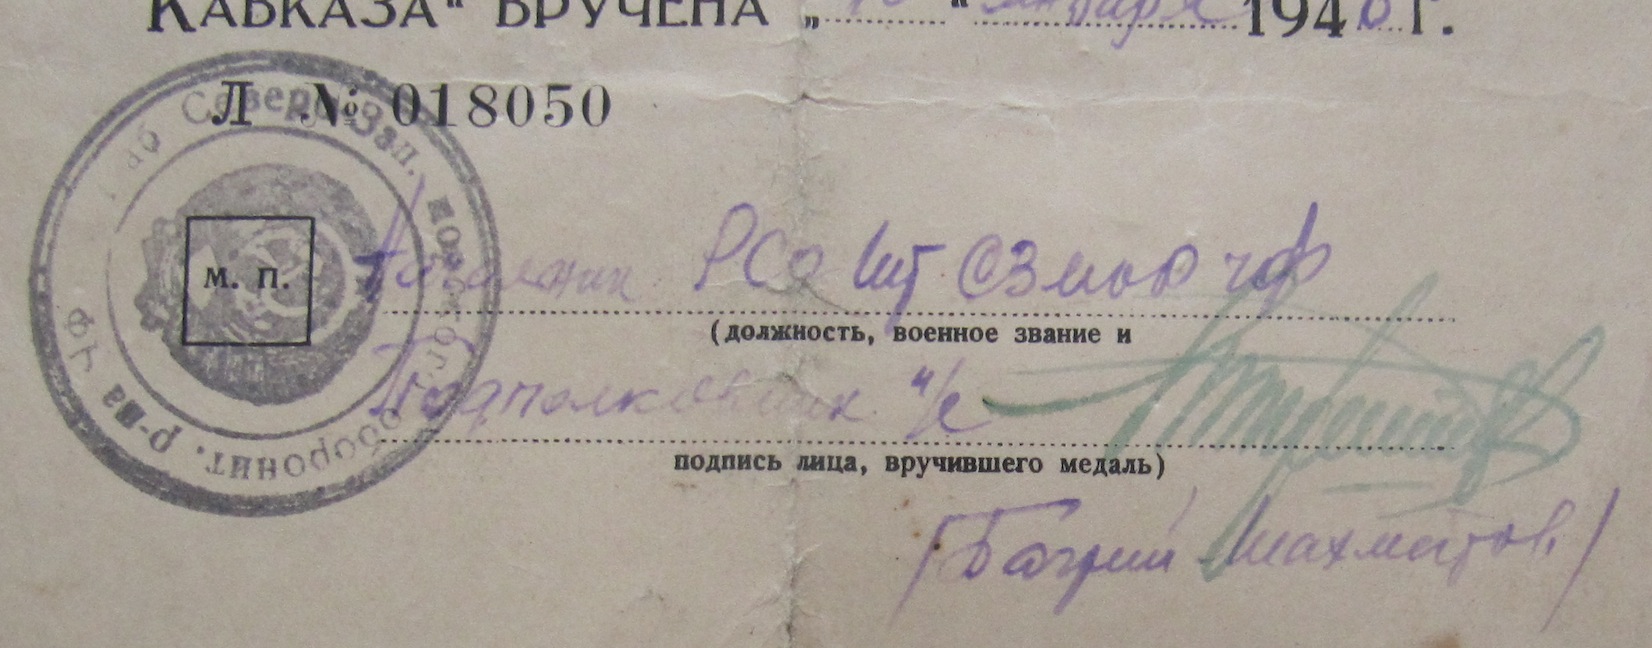 КАВКАЗА" ВРУЧЕНА „ " января 1946 г.
Л № 018050
Штаб Северо-Зап. морского оборонит. р-на ЧФ
М. П.
Начальник РСО шт СЗМОР ЧФ
(должность, военное звание и
Подполковник и/с
подпись лица, вручившего медаль)
(Багрий Шахматов)